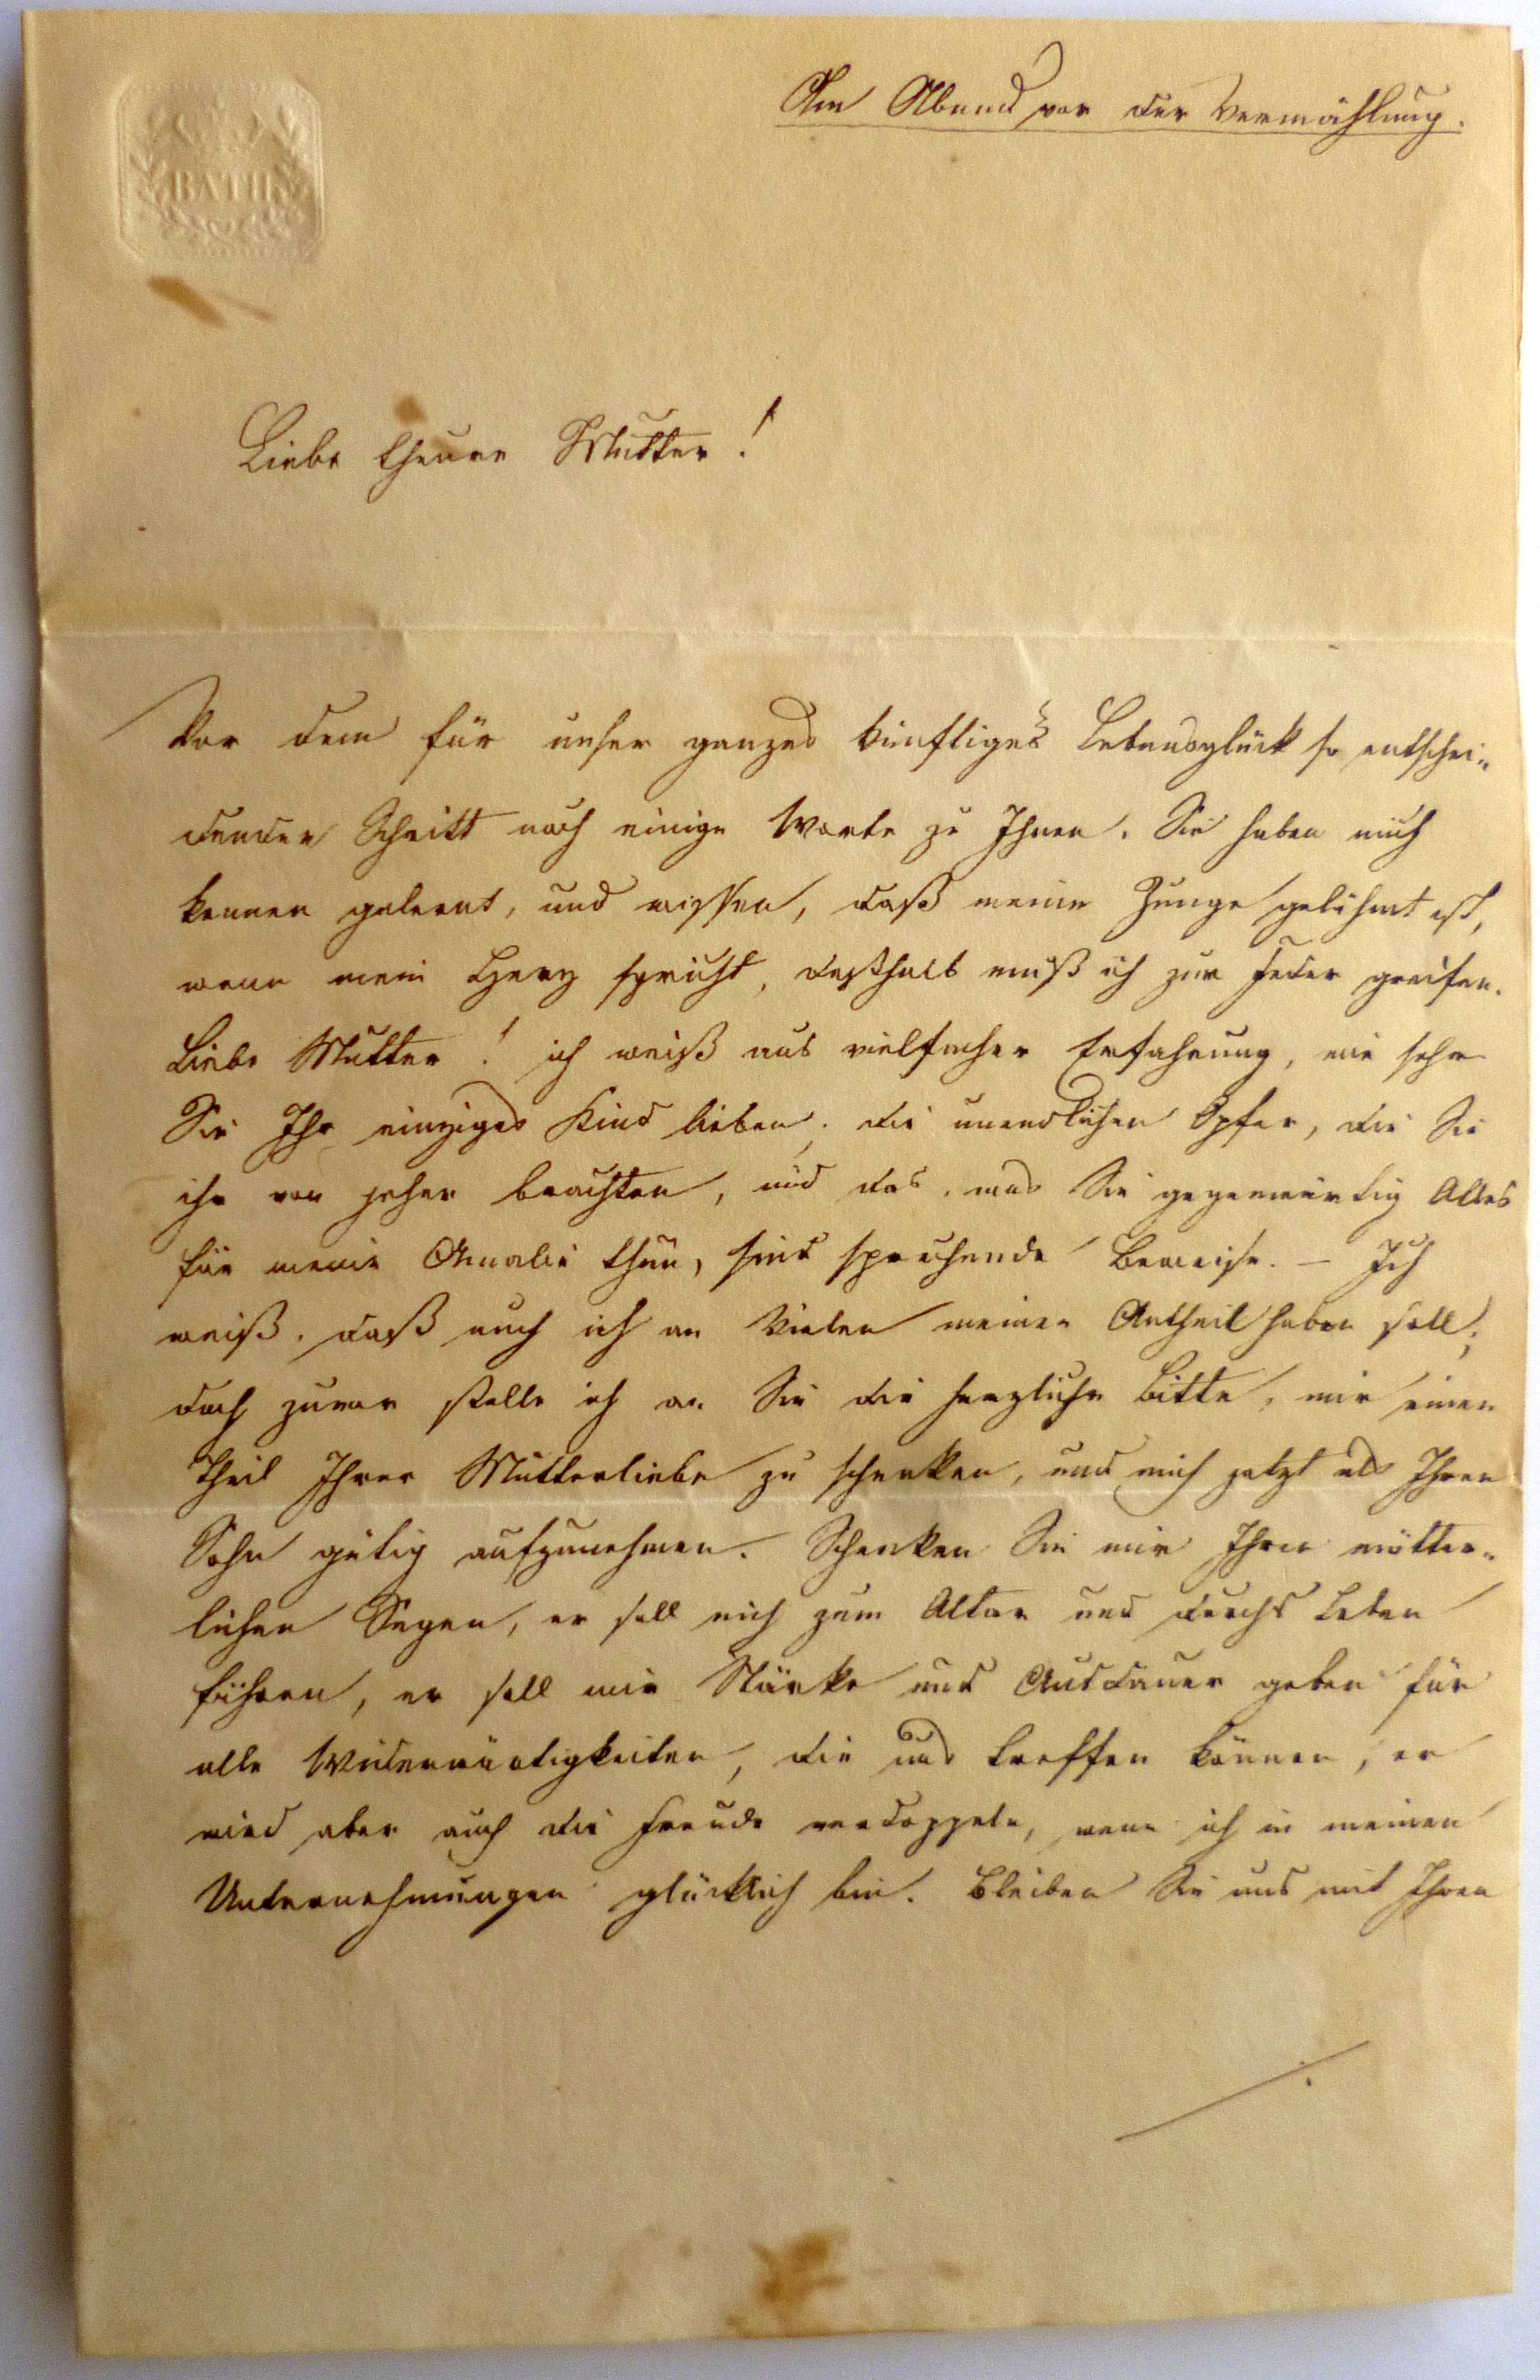 BATH
Am Abend vor der Vermählung.
Liebe theure Mutter!
Vor dem für unser ganzes künftiges Lebensglück so entschei-
denden Schritt noch einige Worte zu Ihnen. Sie haben mich
kennen gelernt, und wissen, daß meine Zunge gelähmt ist,
wenn mein Herz spricht, deßhalb muß ich zur Feder greifen.
Liebe Mutter! ich weiß aus vielfacher Erfahrung, wie sehr
Sie Ihr einziges Kind lieben; die unendlichen Opfer, die Sie
ihr von jeher brachten, und das, was Sie gegenwärtig Alles
für meine Amalie thun, sind sprechende Beweise. – Ich
weiß, daß auch ich an Vielen meinen Antheil haben soll;
doch zuvor stelle ich an Sie die herzliche Bitte, mir einen
Theil Ihrer Mutterliebe zu schenken, und mich jetzt als Ihren
Sohn gütig aufzunehmen. Schenken Sie mir Ihren mütter-
lichen Segen, er soll mich zum Altar und durchs Leben
führen, er soll mir Stärke und Ausdauer geben für
alle Widerwärtigkeiten, die uns treffen können, er
wird aber auch die Freude verdoppeln, wenn ich in meinen
Unternehmungen glücklich bin. Bleiben Sie uns mit Ihren